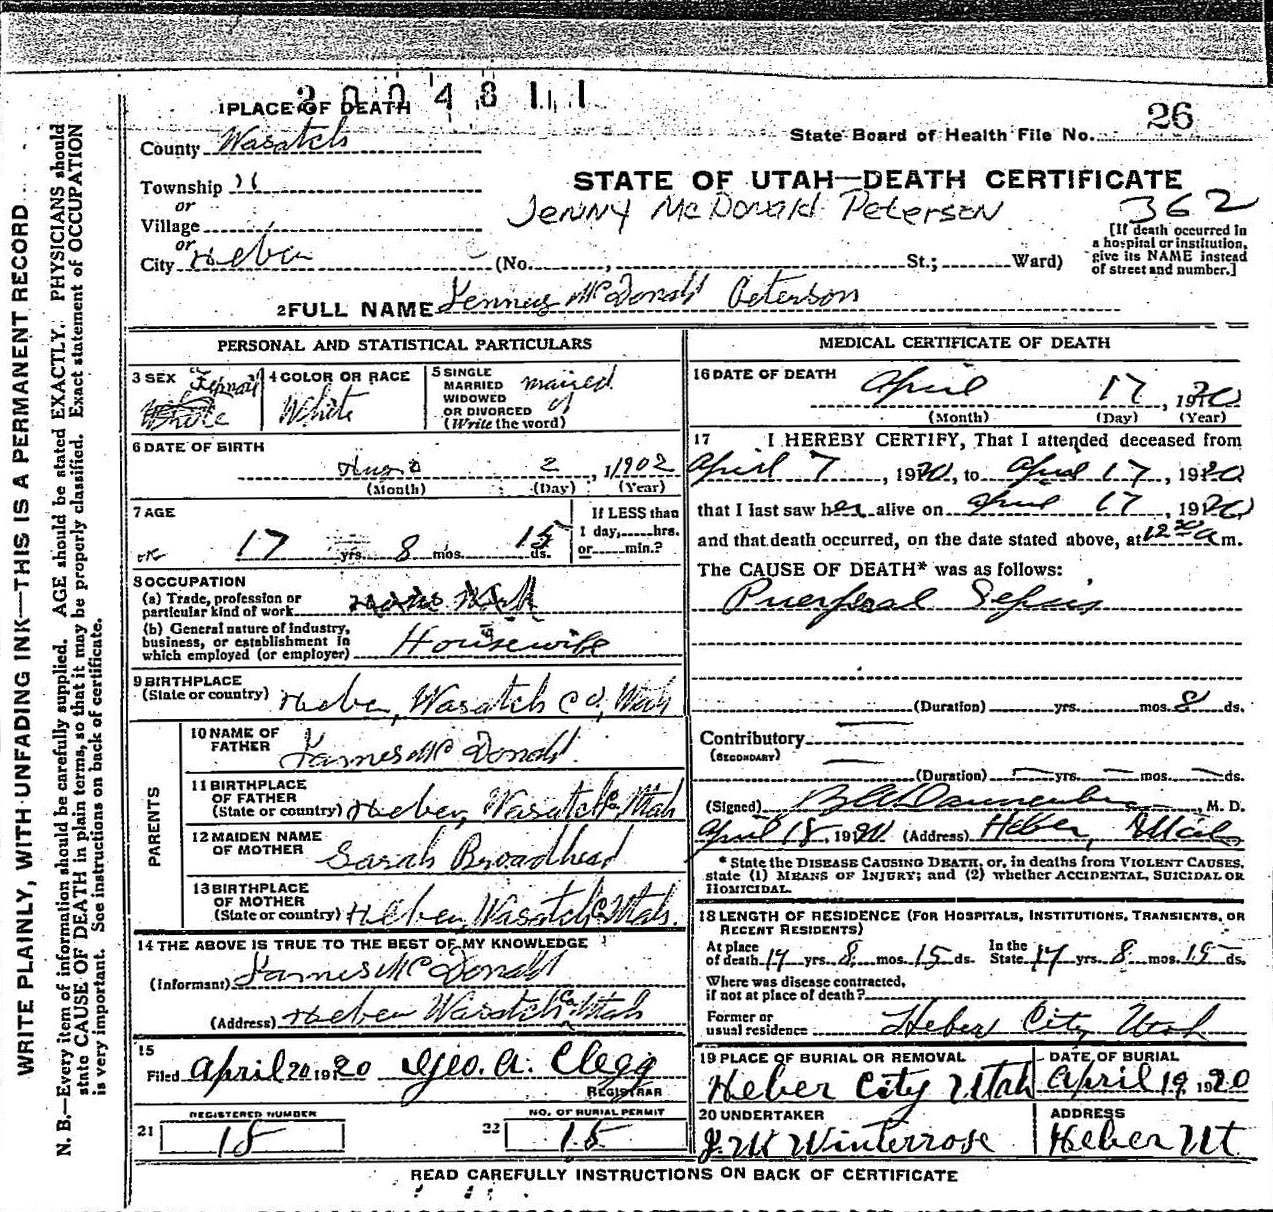 2004811
1 PLACE OF DEATH
26
State Board of Health File No.
County Wasatch
Township "
or
Village
or
City Heber (No. , St.; Ward)
STATE OF UTAH—DEATH CERTIFICATE
Jenny McDonald Peterson
362
[If death occurred in
a hospital or institution,
give its NAME instead
of street and number.]
2 FULL NAME McDonald Peterson
WRITE PLAINLY, WITH UNFADING INK—THIS IS A PERMANENT RECORD
N. B.—Every item of information should be carefully supplied. AGE should be stated EXACTLY. PHYSICIANS should
state CAUSE OF DEATH in plain terms, so that it may be properly classified. Exact statement of OCCUPATION
is very important. See instructions on back of certificate.
PERSONAL AND STATISTICAL PARTICULARS
3 SEX
White
4 COLOR OR RACE
White
5 SINGLE
MARRIED
WIDOWED
OR DIVORCED
(Write the word)
6 DATE OF BIRTH
2, 1902
(Month) (Day) (Year)
7 AGE
17 yrs. 8 mos. 15 ds.
If LESS than
1 day, hrs.
or min.?
8 OCCUPATION
(a) Trade, profession or
particular kind of work
(b) General nature of industry,
business, or establishment in
which employed (or employer) Housewife
9 BIRTHPLACE
(State or country) Heber, Wasatch Co, Utah
PARENTS
10 NAME OF
FATHER James McDonald
11 BIRTHPLACE
OF FATHER
(State or country) Heber, Wasatch Co Utah
12 MAIDEN NAME
OF MOTHER Sarah Broadhead
13 BIRTHPLACE
OF MOTHER
(State or country) Heber, Wasatch Co Utah.
14 THE ABOVE IS TRUE TO THE BEST OF MY KNOWLEDGE
(Informant) James McDonald
(Address) Heber Wasatch Co Utah
15
Filed April 20 1920 Geo. A. Clegg
REGISTRAR
REGISTERED NUMBER
21 15
NO. OF BURIAL PERMIT
22 15
MEDICAL CERTIFICATE OF DEATH
16 DATE OF DEATH
April 17, 1920
(Month) (Day) (Year)
17 I HEREBY CERTIFY, That I attended deceased from
April 7, 1920, to April 17, 1920
that I last saw her alive on April 17, 1920
and that death occurred, on the date stated above, at 12 30 a m.
The CAUSE OF DEATH* was as follows:
Puerperal Sepsis
(Duration) yrs. mos. 8 ds.
Contributory
(SECONDARY)
(Duration) yrs. mos. ds.
(Signed) , M. D.
April 18, 1920 (Address) Heber, Utah
* State the DISEASE CAUSING DEATH, or, in deaths from VIOLENT CAUSES,
state (1) MEANS OF INJURY; and (2) whether ACCIDENTAL, SUICIDAL OR
HOMICIDAL.
18 LENGTH OF RESIDENCE (FOR HOSPITALS, INSTITUTIONS, TRANSIENTS, OR
RECENT RESIDENTS)
At place
of death 17 yrs. 8 mos. 15 ds. In the
State 17 yrs. 8 mos. 15 ds.
Where was disease contracted,
if not at place of death?
Former or
usual residence Heber City, Utah
19 PLACE OF BURIAL OR REMOVAL
Heber City Utah
DATE OF BURIAL
April 19 1920
20 UNDERTAKER
J. W. Winterrose
ADDRESS
Heber Ut
READ CAREFULLY INSTRUCTIONS ON BACK OF CERTIFICATE